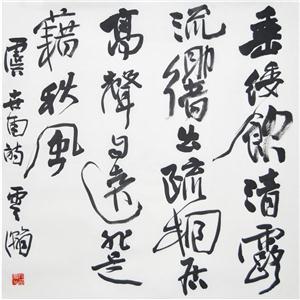 垂緌飲清露
流響出疏桐居
高聲自遠非是
藉秋風
虞世南詩